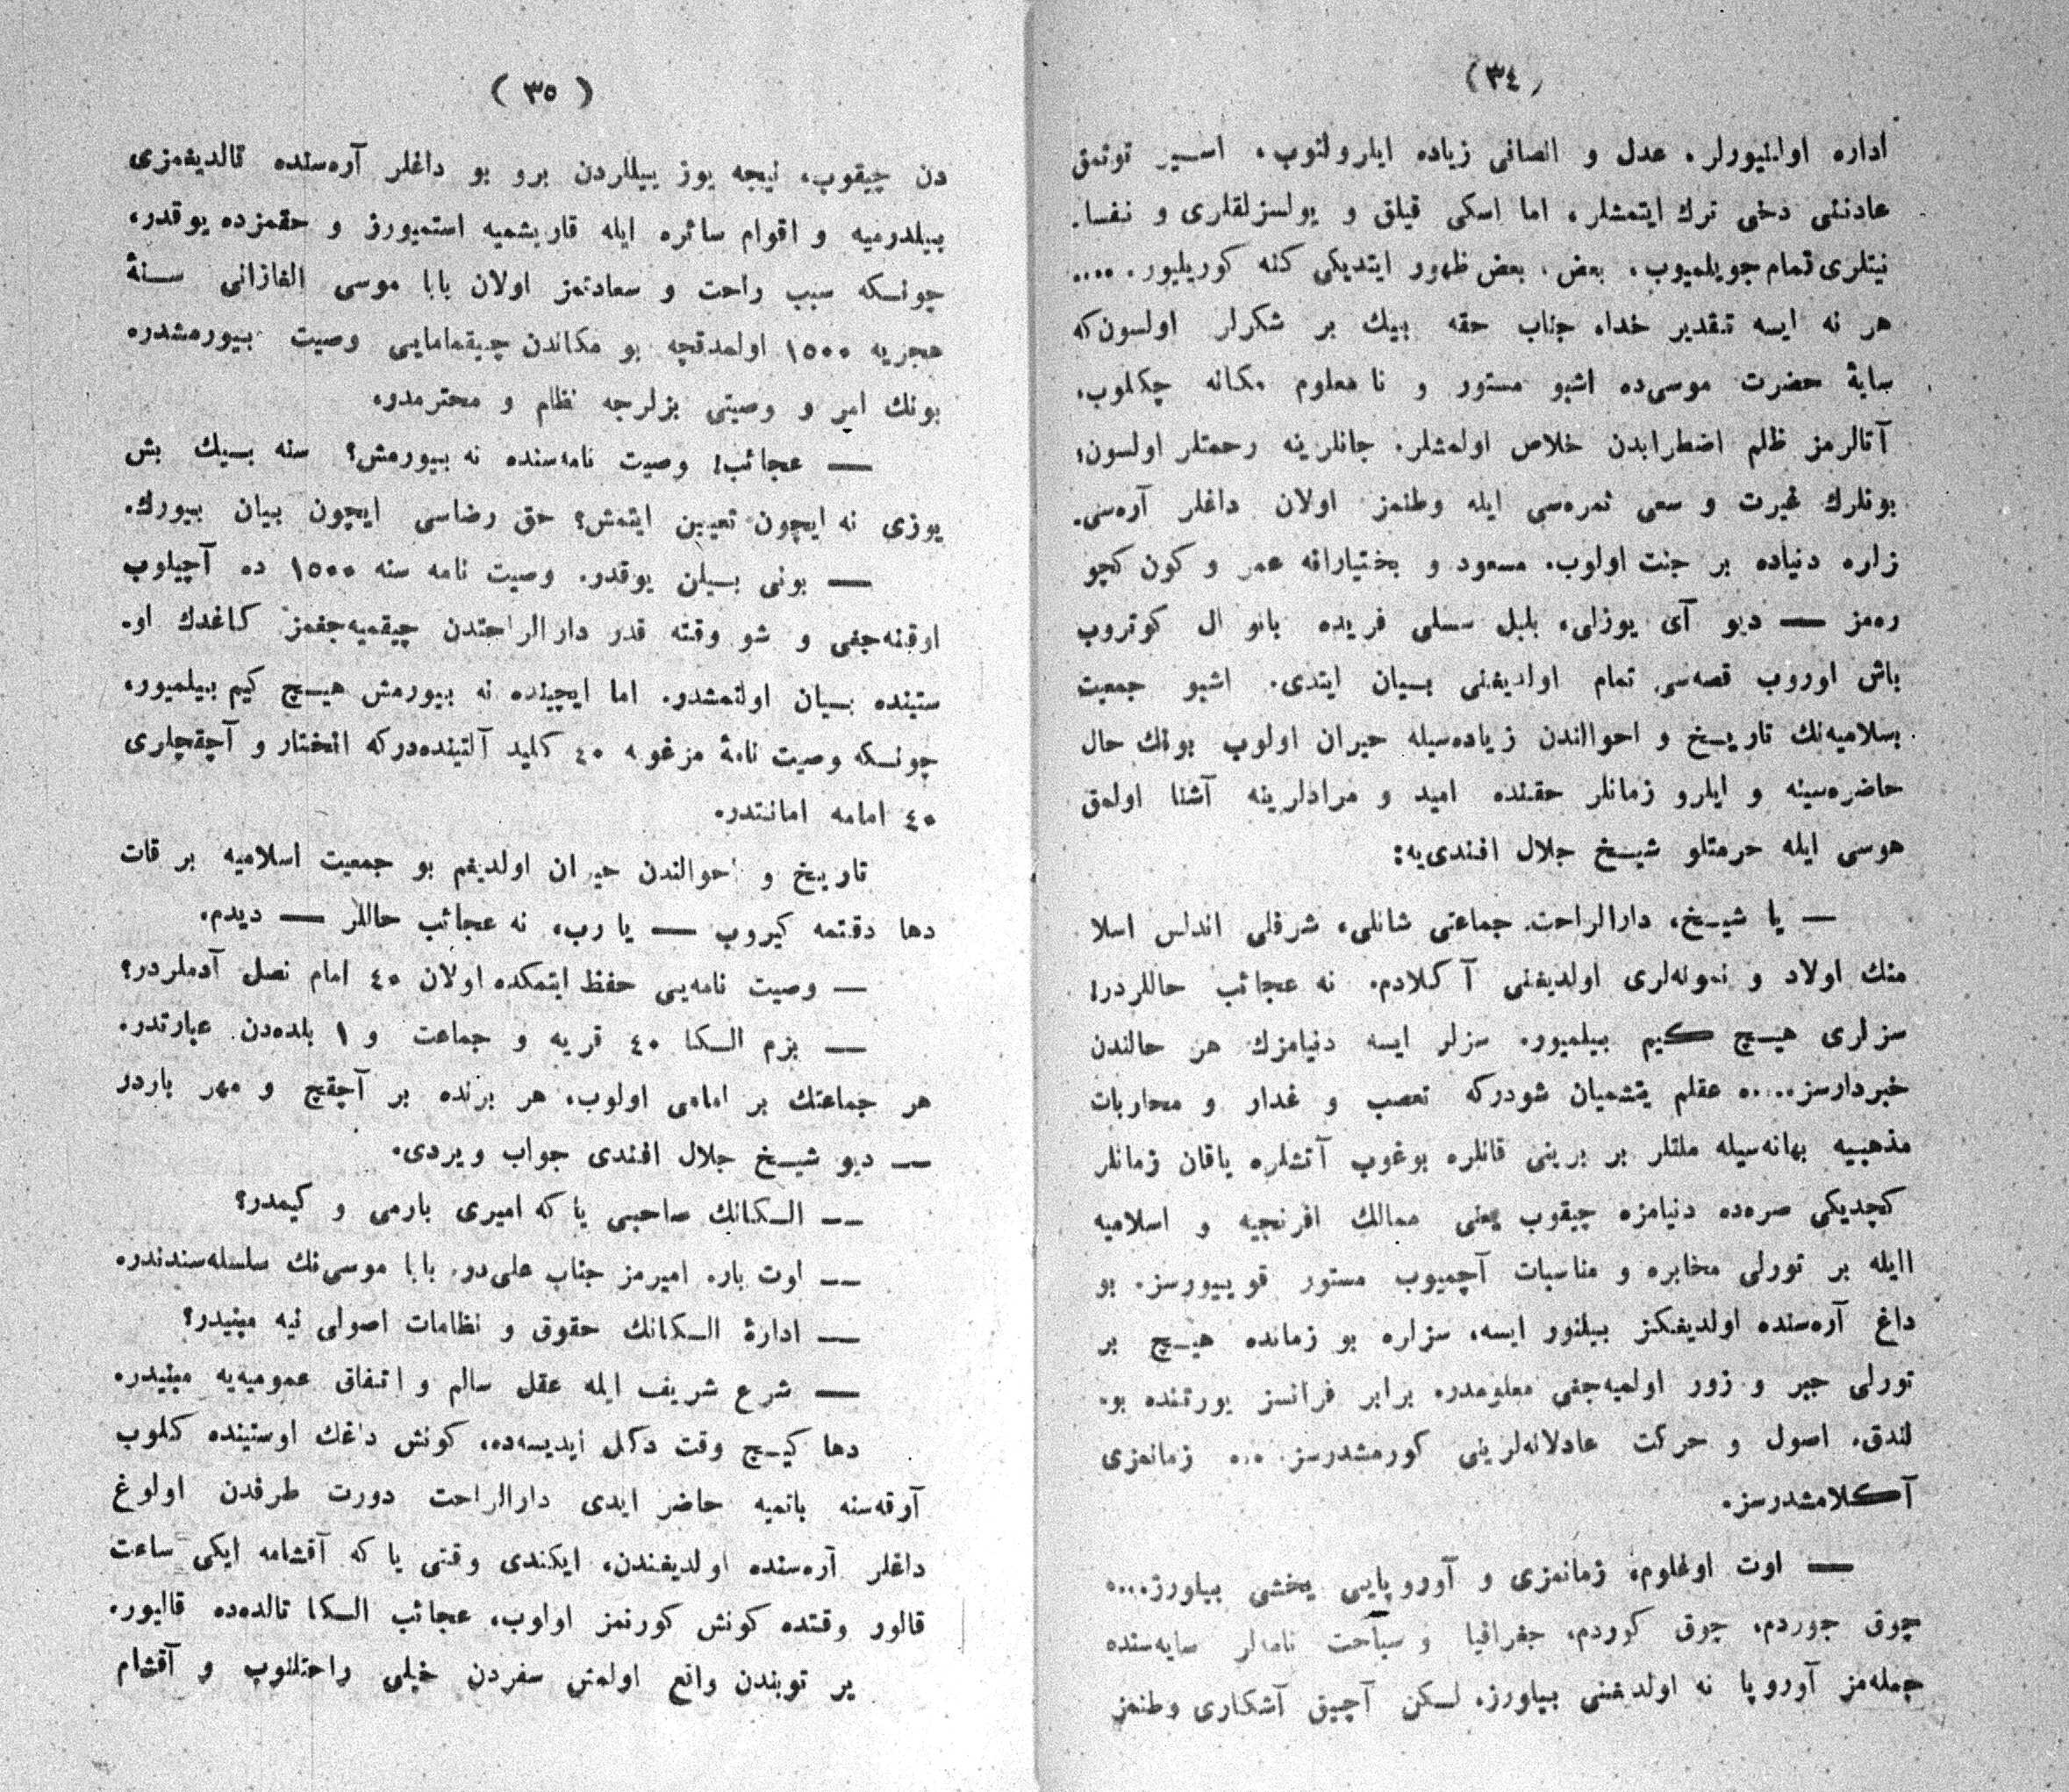 (٣٤)
اداره اولنیورلر. عدل و انصافی زیاده ایلرولنوب، اسیر توتمق
عادتنی دخی ترك ایتمشلر، اما اسكی قیلق و یولسزلقلری و نفسا.
نیتلری تمام جویلمیوب، بعض، بعض ظهور ایتدیكی كنه كوریلیور. ....
هر نه ایسه تقدیر خداه جناب حقه بیك بر شكرلر اولسون كه
سایۀ حضرت موسی‌ده اشبو مستور و نا معلوم مكانه چكلوب،
آتالرمز ظلم اضطرابدن خلاص اولمشلر. جانلرینه رحمتلر اولسون؛
بونلرك غیرت و سعی ثمره‌سی ایله وطنمز اولان داغلر آره‌سی.
زاره دنیاده بر جنت اولوب، مسعود و بختیارانه عمر و كون كچو
ره‌مز — دیو آی یوزلی، بلبل سسلی فریده بانو ال كوتروب
باش اوروب قصه‌سی تمام اولدیغنی بیان ایتدی. اشبو جمعیت
اسلامیه‌نك تاریخ و احوالندن زیاده‌سیله حیران اولوب بونك حال
حاضره‌سینه و ایلرو زمانلر حقنده امید و مرادلرینه آشنا اولمق
هوسی ایله حرمتلو شیخ جلال افندی‌یه:
— یا شیخ، دارالراحت جماعتی شانلی، شرفلی اندلس اسلا
منك اولاد و نمونه‌لری اولدیغنی آكلادم. نه عجائب حاللردر!
سزلری هیچ كیم بیلمیور. سزلر ایسه دنیامزك هر حالندن
خبردارسز..... عقلم یتشمیان شودركه تعصب و غدار و محاربات
مذهبیه بهانه‌سیله ملتلر بر برینی قانلره بوغوب آتشلره یاقان زمانلر
كچدیكی صره‌ده دنیامزه چیقوب یعنی ممالك افرنجیه و اسلامیه
ایله بر تورلی مخابره و مناسبات آچمیوب مستور قوییورسز. بو
داغ آره‌سنده اولدیغكز بیلنور ایسه، سزلره بو زمانده هیچ بر
تورلی جبر و زور اولمیه‌جغی معلومدر، برابر فرانسز یورتنده بو.
لندق. اصول و حركت عادلانه‌لرینی كورمشدرسز. ... زمانمزی
آكلامشدرسز.
— اوت اوغلوم، زمانمزی و آوروپایی یخشی بیلورز....
چوق جوردم، چوق كوردم، جغرافیا و سیاحت نامه‌لر سایه‌سنده
جمله‌مز آوروپا نه اولدغنی بیلورز. لكن آچیق آشكاری وطنمز
( ٣٥ )
دن چیقوب، نیچه یوز ییللردن برو بو داغلر آره‌سنده قالدیغمزی
بیلدرمیه و اقوام سائره ایله قاریشمیه استمیورز و حقمزده یوقدر،
چونكه سبب راحت و سعادتمز اولان بابا موسی الغازانی سنۀ
هجریه ١٥٠٠ اولمدقچه بو مكاندن چیقمامایی وصیت بیورمشدر.
بونك امر و وصیتی بزلرجه نظام و محترمدر.
— عجائب! وصیت نامه‌سنده نه بیورمش؟ سنه بیك بش
یوزی نه ایچون تعیین ایتمش؟ حق رضاسی ایچون بیان بیورك.
— بونی بیلن یوقدر. وصیت نامه سنه ١٥٠٠ ده آچیلوب
اوقنه‌جغی و شو وقته قدر دارالراحتدن چیقمیه‌جغمز كاغدك او.
ستینده بیان اولنمشدر. اما ایچینده نه بیورمش هیچ كیم بیلمیور،
چونكه وصیت نامۀ مزغوبه ٤٠ كلید آلتینده‌دركه انختار و آچقچلری
٤٠ امامه امانتدر.
تاریخ و احوالندن حیران اولدیغم بو جمعیت اسلامیه بر قات
دها دقتمه كیروب — یا رب، نه عجائب حاللر — دیدم.
— وصیت نامه‌یی حفظ ایتمكده اولان ٤٠ امام نصل آدملردر؟
— بزم الكا ٤٠ قریه و جماعت و ١ بلده‌دن عبارتدر.
هر جماعتك بر امامی اولوب، هر برنده بر آچقچ و مهر باردر
— دیو شیخ جلال افندی جواب ویردی.
— الكانك صاحبی یا كه امیری بارمی و كیمدر؟
— اوت بار، امیرمز جناب علی‌در. بابا موسی‌نك سلسله‌سندندر.
— ادارۀ الكانك حقوق و نظامات اصولی نیه مبنیدر؟
— شرع شریف ایله عقل سالم و اتفاق عمومیه‌یه مبنیدر.
دها كیچ وقت دكل ایدیسه‌ده، كونش داغك اوستینده كلوب
آرقه‌سنه باتمیه حاضر ایدی دارالراحت دورت طرفدن اولوغ
داغلر آره‌سنده اولدیغندن، ایكندی وقتی یا كه آقشامه ایكی ساعت
قالور وقتده كونش كورنمز اولوب، عجائب الكا تالده‌ده قالیور.
یر توبندن واقع اولمش سفردن خیلی راحتلنوب و آقشام